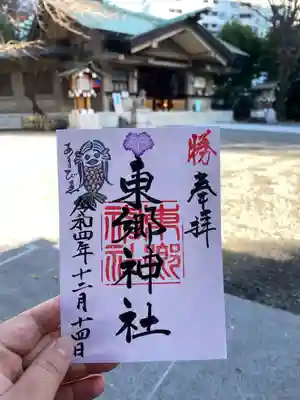 勝
奉拝
東郷神社
東郷神社
令和四年十二月十四日
あまびゑ